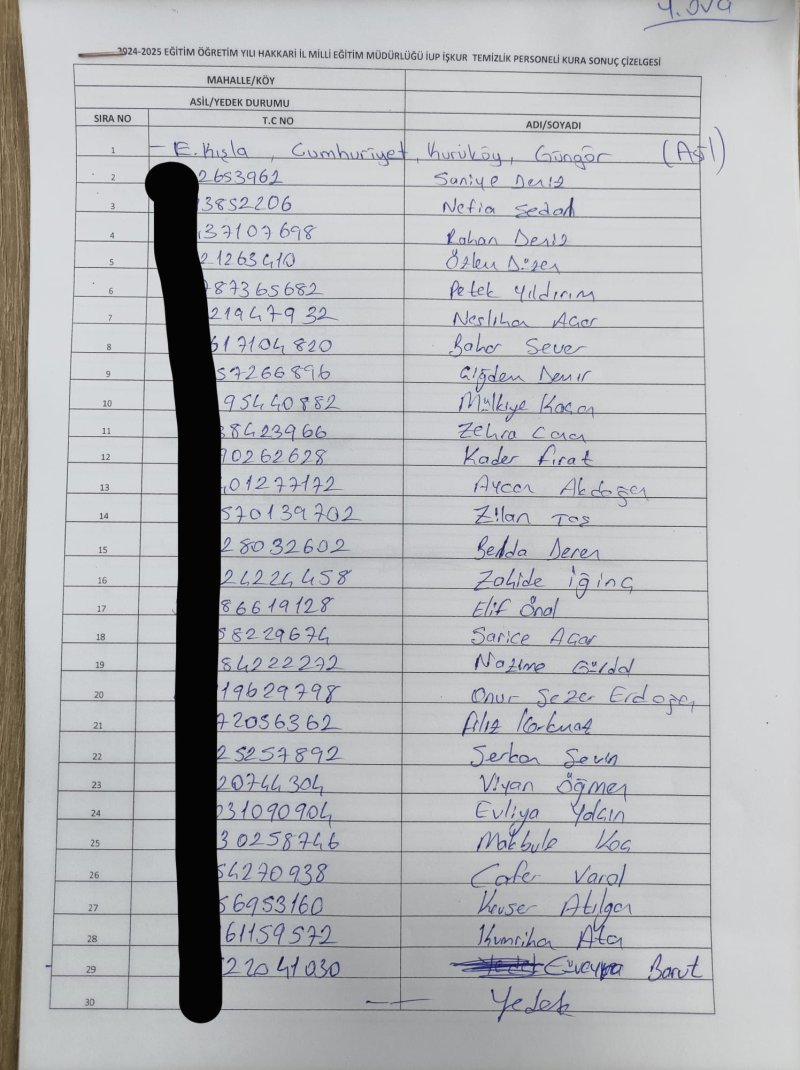 Y.OVA
2024-2025 EĞİTİM ÖĞRETİM YILI HAKKARİ İL MİLLİ EĞİTİM MÜDÜRLÜĞÜ İUP İŞKUR TEMİZLİK PERSONELİ KURA SONUÇ ÇİZELGESİ
MAHALLE/KÖY
ASİL/YEDEK DURUMU
SIRA NO T.C NO ADI/SOYADI
1 E.Kışla, Cumhuriyet, Kuruköy, Güngör (Asil)
2 2653962 Saniye Deniz
3 3852206 Nefia Sedan
4 37107698 Rahan Deniz
5 21263410 Özlem Düzen
6 787365682 Petek Yıldırım
7 21947932 Neslihan Acar
8 617104820 Bahar Sever
9 57266896 Çiğdem Demir
10 95440882 Mülkiye Kaçan
11 38423966 Zehra
12 90262628 Kader Fırat
13 401277172 Aycan Akdoğan
14 570139702 Zilan Taş
15 28032602 Deren
16 24224458 Zahide İğinç
17 86619128 Elif Önal
18 58229674 Sarice Acar
19 84222272 Nazime Gürdal
20 19629798 Onur Sezer Erdoğan
21 72036362 Filiz Korkmaz
22 25257892 Serkan Sevin
23 20744304 Viyan Öğmen
24 031090904 Evliya Yalçın
25 30258746 Makbule Koç
26 54270938 Cafer Varol
27 56953160 Kevser Atılgan
28 61159572 Kumriha Ata
29 22041030 Barut
30 Yedek